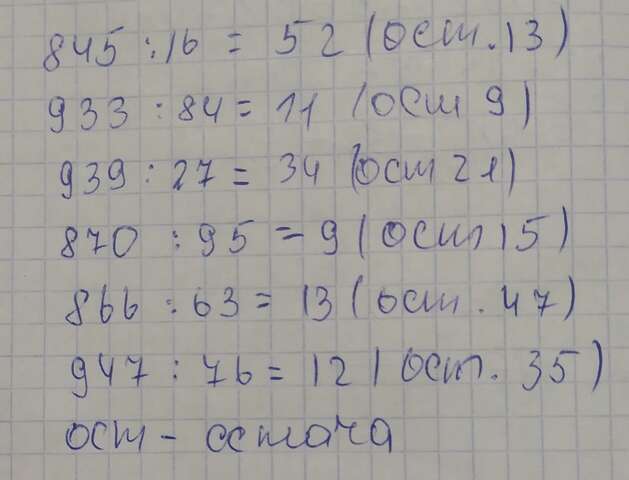 845 : 16 = 52 (ост. 13)
933 : 84 = 11 (ост 9)
939 : 27 = 34 (ост 21)
870 : 95 = 9 (ост 15)
866 : 63 = 13 (ост. 47)
947 : 76 = 12 ( ост. 35)
ост - остача